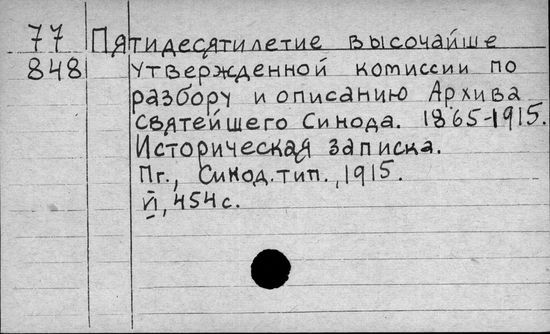 77 Пятидесятилетие высочайше
848 утвержденной комиссии по
разбору и описанию Архива
святейшего Синода. 1865-1915.
Историческая записка.
Пг., Синод. тип., 1915.
й, 454 с.